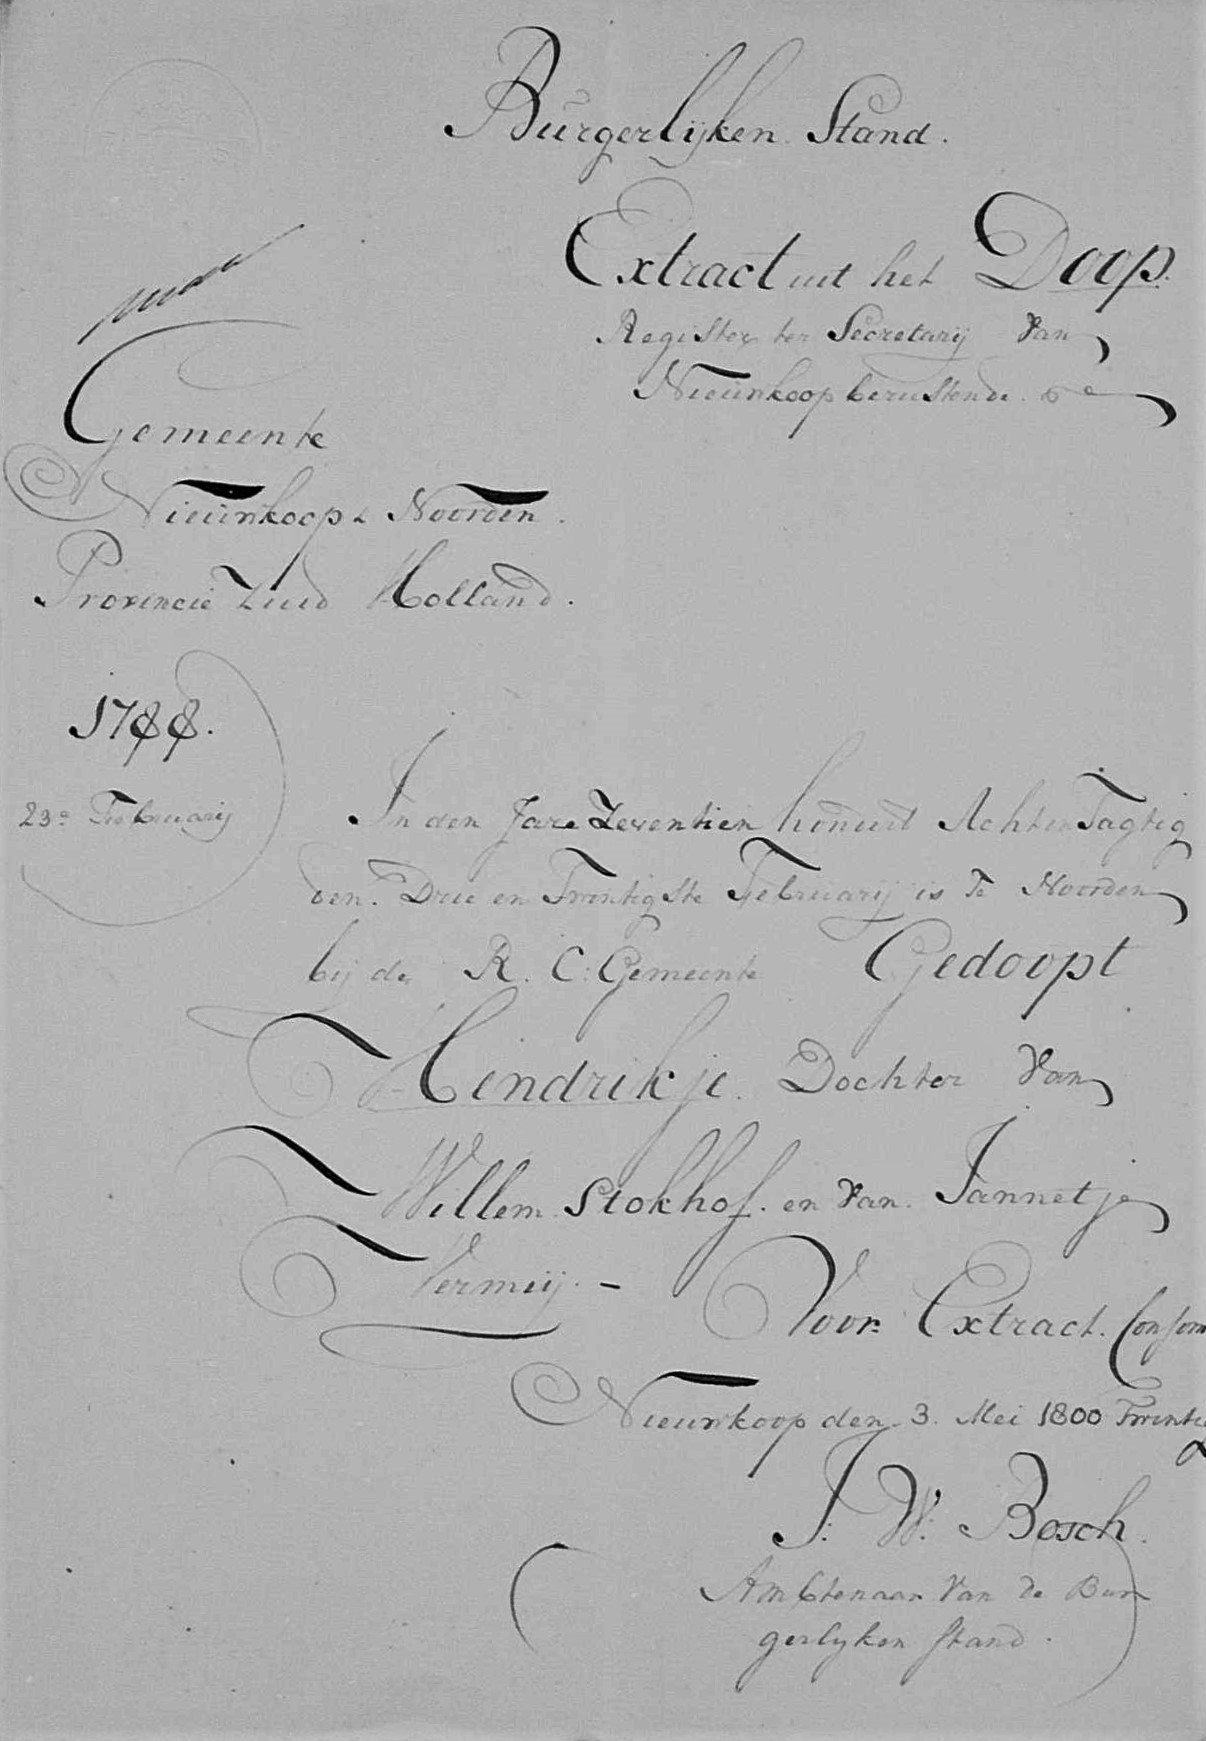 Burgerlijken Stand.
Extract uit het Doop
Register ter Secretarij Van
Nieuwkoop berustende
Gemeente
Nieuwkoop & Noorden.
Provincie Zuid Holland.
1788.
23e Februarij
In den Jare Zeventien honderd Achten Tagtig
den Drie en Twintigste Februarij is te Noorden
bij de R. C: Gemeente Gedoopt
Hendrikje. Dochter Van
Willem Stokhof. en Van Jannetje
Vermeij. –
Voor Extract. Conform
Nieuwkoop den 3. Mei 1800 Twintig
J: W: Bosch.
Ambtenaar Van de Bur
gerlyken Stand.